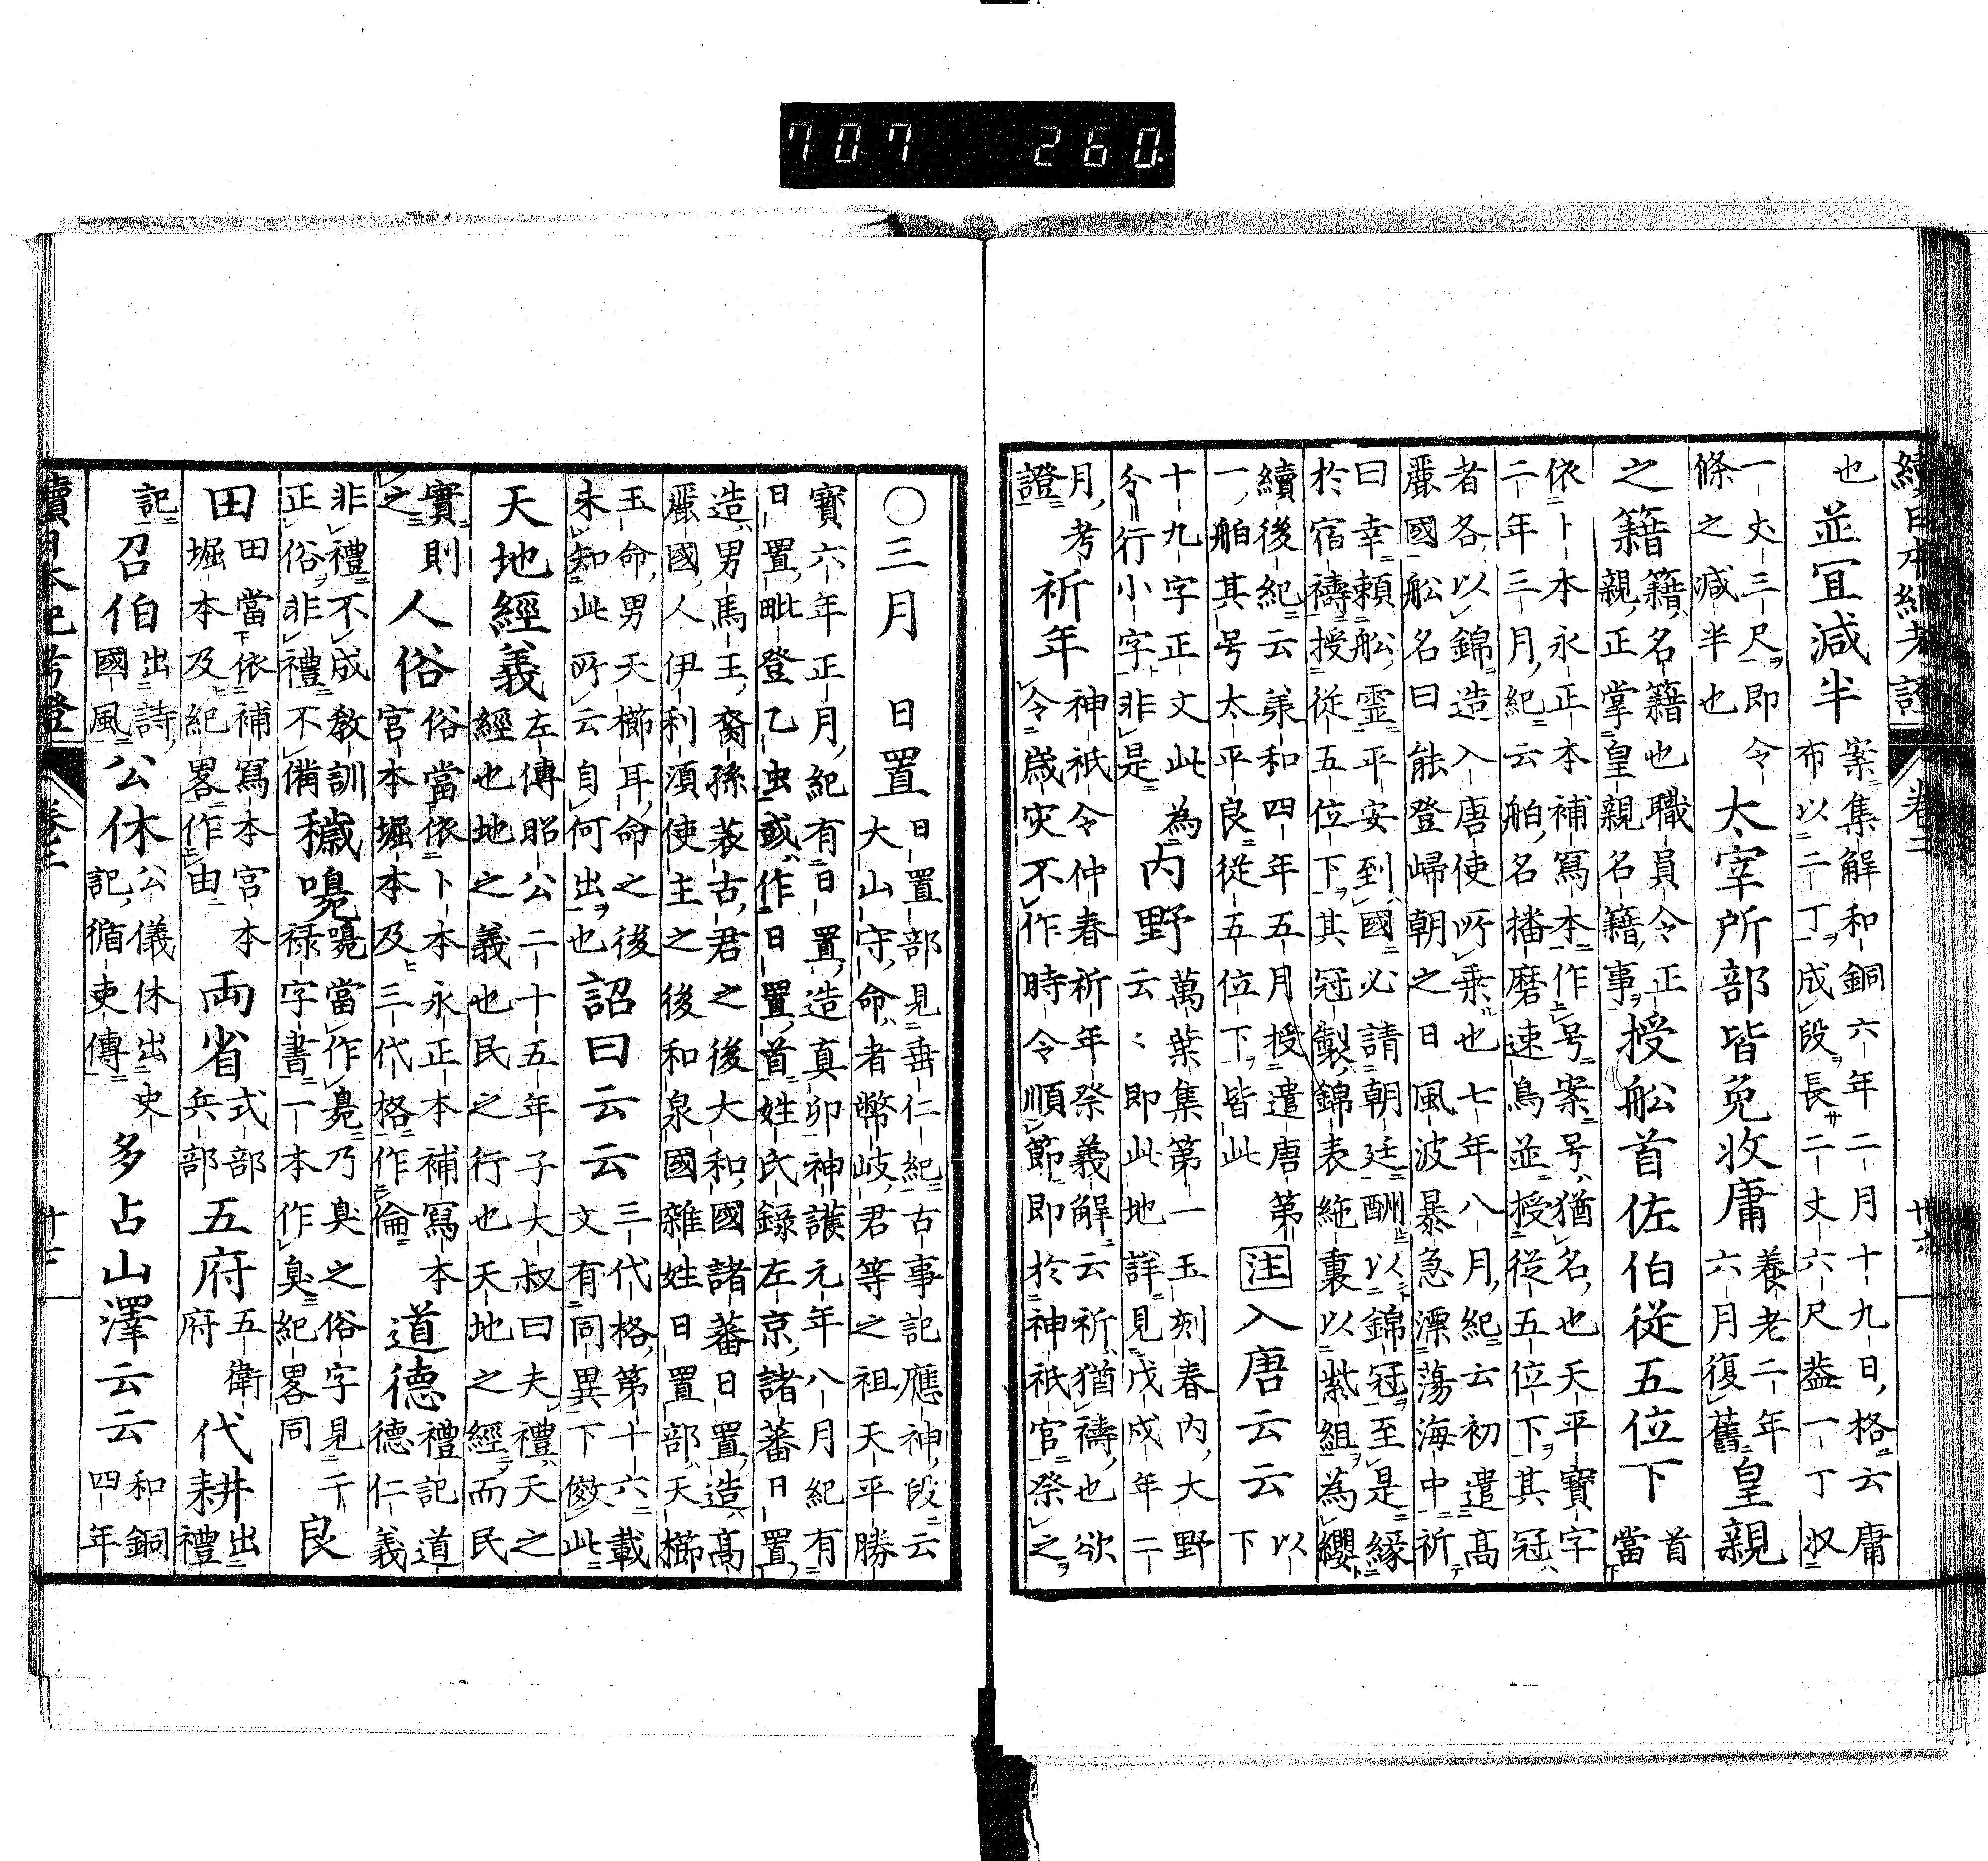 707 260
續日本紀考證 卷三 廿六
也 並宜減半 案集解和銅六年二月十九日格云庸
布以二丁成段長二丈六尺益一丁収
一丈三尺即令
條之減半也 太宰所部皆免收庸 養老二年
六月復舊 皇親
之籍 籍名籍也職員令正
親正掌皇親名籍事 授舩首佐伯從五位下 首
當
依卜本永正本補寫本作号案号猶名也天平寶字
二年三月紀云舶名播磨速鳥並授從五位下其冠
者各以錦造入唐使所乘也七年八月紀云初遣高
麗國舩名曰能登歸朝之日風波暴急漂蕩海中祈
曰幸賴舩靈平安到國必請朝廷酬以錦冠至是緣
於宿禱授從五位下其冠製錦表絁裏以紫組為纓
續後紀云羕和四年五月授遣唐第
一舶其号太平良從五位下皆此 注 入唐云云 以
下
十九字正文此為
今行小字非是 内野 萬葉集第一玉刻春内大野
云〻即此地詳見戊戌年二
月考
證 祈年 神祇令仲春祈年祭義解云祈猶禱也欲
令歲灾不作時令順節即於神祇官祭之
〇三月 日置 日置部見垂仁紀古事記應神段云
大山守命者幣岐君等之祖天平勝
寶六年正月紀有日置造真卯神護元年八月紀有
日置毗登乙虫或作日置首姓氏錄左京諸蕃日置
造男馬王裔孫蓑古君之後大和國諸蕃日置造高
麗國人伊利須使主之後和泉國雜姓日置部天櫛
玉命男天櫛耳命之後
未知此所云自何出也 詔曰云云 三代格第十六載
文有同異下儆此
天地經義 左傳昭公二十五年子大叔曰夫禮天之
經也地之義也民之行也天地之經而民
實則
之 人俗 俗當依卜本永正本補寫本
宮本堀本及三代格作倫 道德 禮記道
德仁義
非禮不成教訓
正俗非禮不備 穢㗱 㗱當作臭乃臭之俗字見干
祿字書一本作臭紀畧同 良
田 田當依補寫本宮本
堀本及紀畧作由 両省 式部
兵部 五府 五衛
府 代耕 出
禮
記 召伯 出詩
國風 公休 公儀休出史
記循吏傳 多占山澤云云 和銅
四年
續日本紀考證 卷三